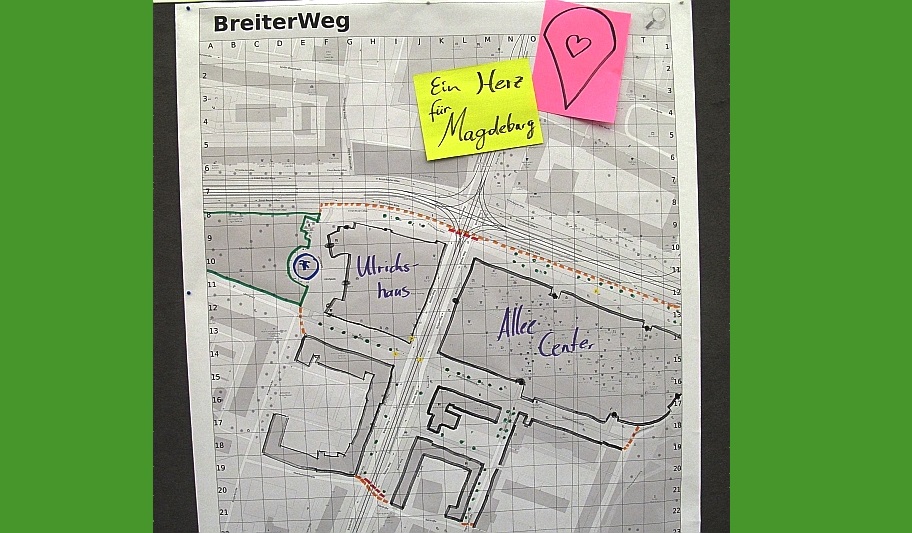 BreiterWeg
Ein Herz
für
Magdeburg
A B C D E F G H I J K L M N O T
1
2
3
4
5
6
7
8
9
10
11
12
13
14
15
16
17
18
19
20
21
Ulrichs-
haus
Allee
Center
1
2
3
4
5
6
7
8
9
10
11
12
13
14
15
16
17
18
19
20
21
22